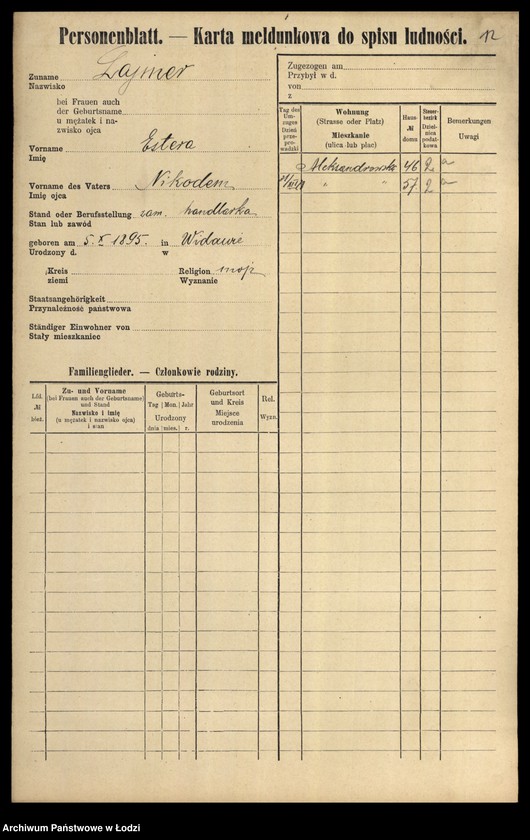 Personenblatt. — Karta meldunkowa do spisu ludności. 12
Zuname Lajmer
Nazwisko
bei Frauen auch
der Geburtsname
u mężatek i na-
zwisko ojca
Vorname Estera
Imię
Vorname des Vaters Nikodem
Imię ojca
Stand oder Berufsstellung zam. handlarka
Stan lub zawód
geboren am 5. X 1895. in Widawie
Urodzony d. w
Kreis Religion mojż
ziemi Wyznanie
Staatsangehörigkeit
Przynależność państwowa
Ständiger Einwohner von
Stały mieszkaniec
Familienglieder. — Członkowie rodziny.
Lfd. № bież.
Zu- und Vorname
(bei Frauen auch der Geburtsname)
und Stand
Nazwisko i imię
(u mężatek i nazwisko ojca)
i stan
Geburts-
Tag | Mon. | Jahr
Urodzony
dnia | mies. | r.
Geburtsort
und Kreis
Miejsce
urodzenia
Rel.
Wyzn.
Zugezogen am
Przybył w d.
von
z
Tag des
Um-
zuges
Dzień
prze-
prowadzki
Wohnung
(Strasse oder Platz)
Mieszkanie
(ulica lub plac)
Haus-
№
domu
Steuer-
bezirk
Dziel-
nica
podat-
kowa
Bemerkungen
Uwagi
Aleksandrowska 46 2 a
" " 57 2 a
Archiwum Państwowe w Łodzi